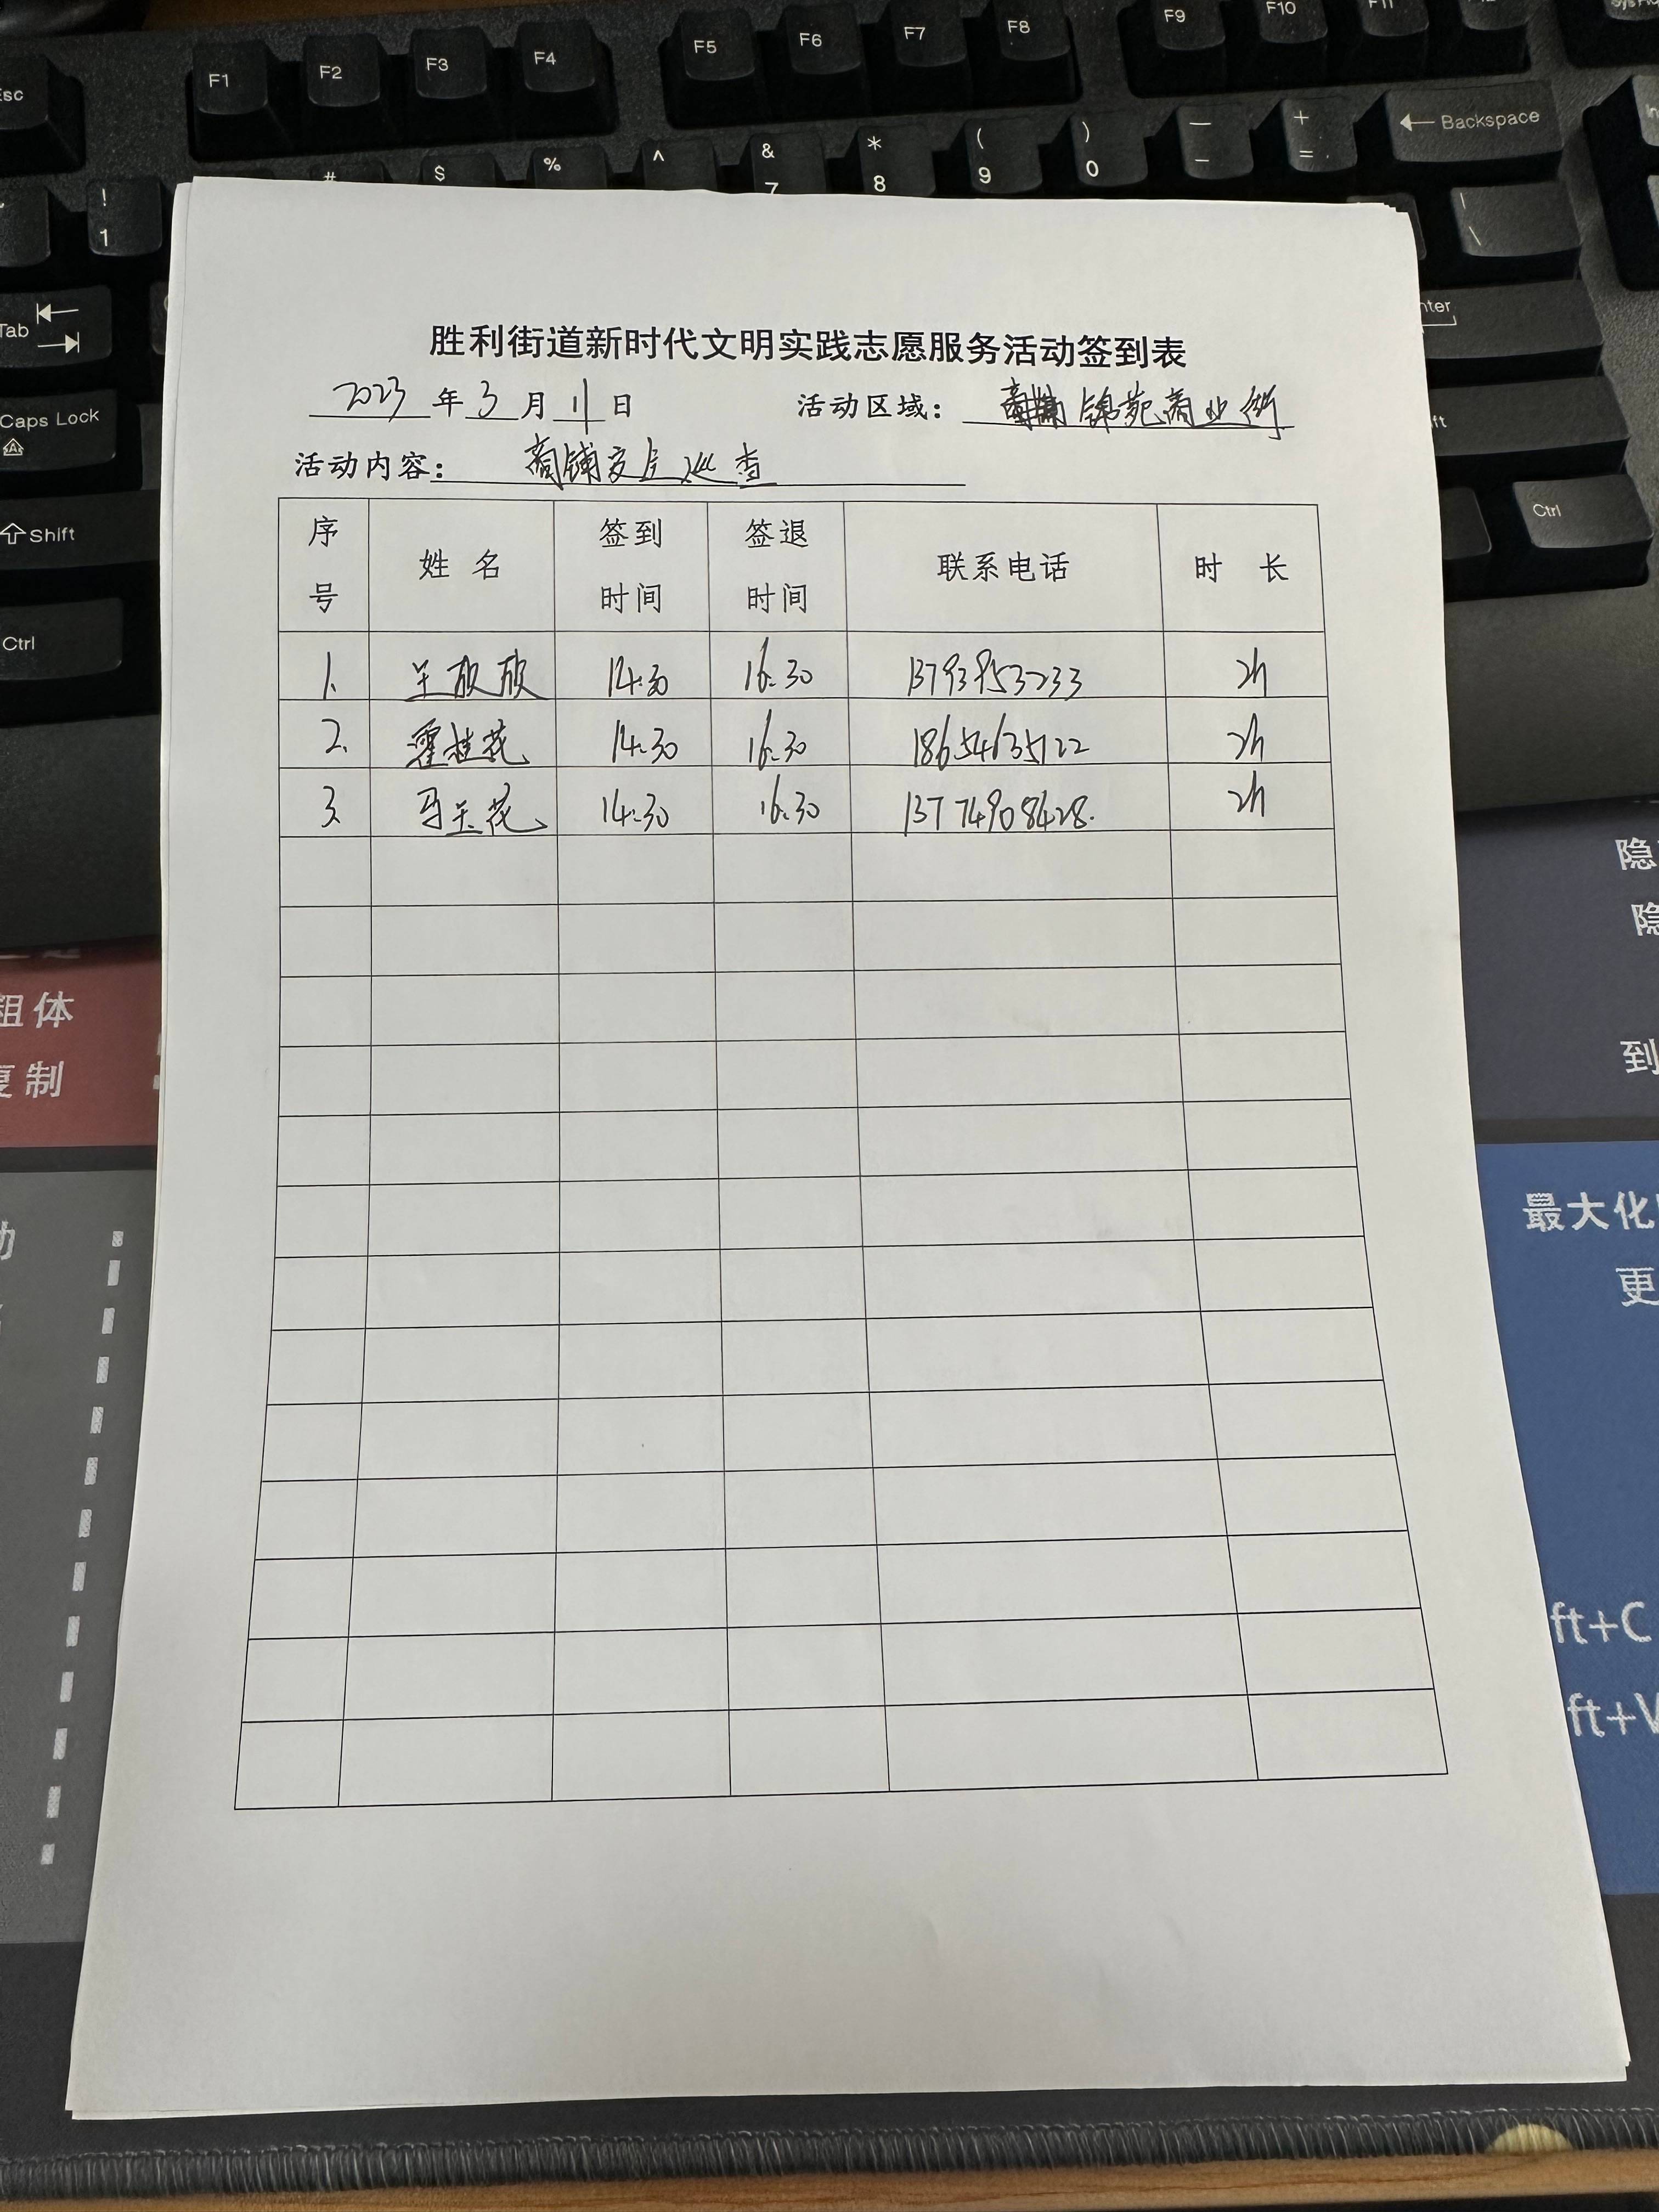 Esc
F1
F2
F3
F4
F5
F6
F7
F8
F9
F10
F11
! # $ % ^ & * ( ) — +
1 7 8 9 0 - =
← Backspace
\
Tab
Caps Lock
Shift
Ctrl
Ctrl
胜利街道新时代文明实践志愿服务活动签到表
2023 年 3 月 11 日 活动区域: 锦苑商业街
活动内容: 商铺安全巡查
序号 姓名 签到时间 签退时间 联系电话 时长
1. 王欣欣 14:30 16:30 13793953233 2h
2. 霍桂花 14:30 16:30 18654635122 2h
3. 马玉花 14:30 16:30 13774908428. 2h
粗体
复制
隐
隐
到
最大化
更
ft+C
ft+V